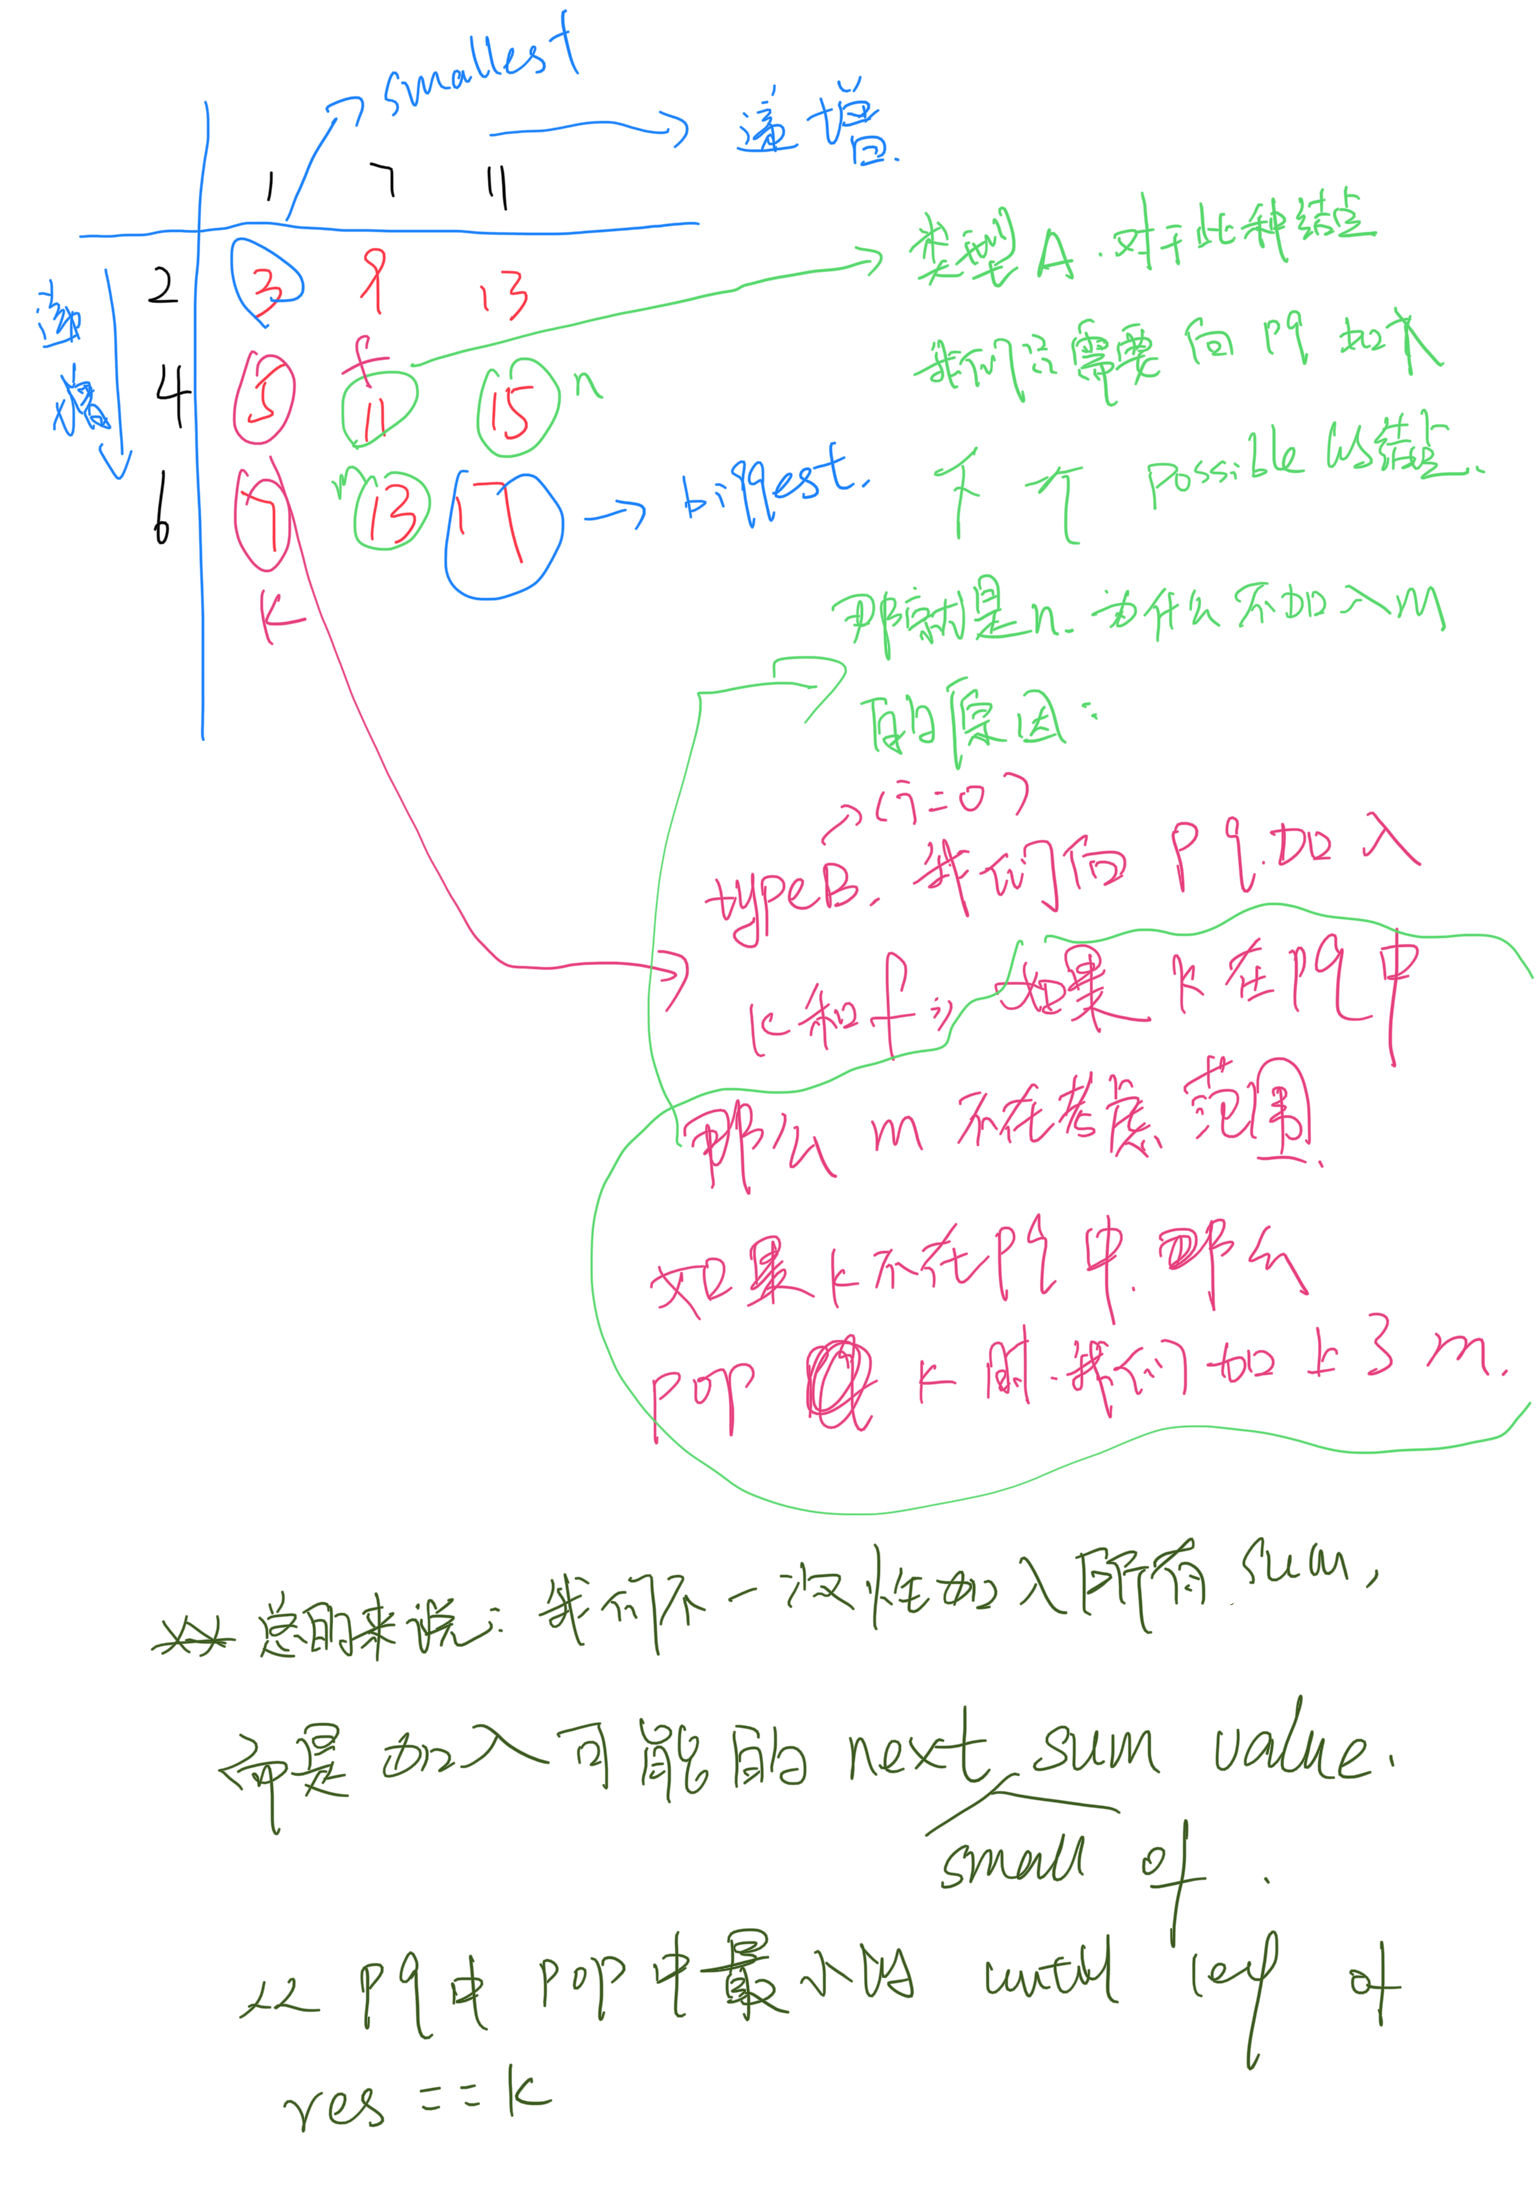 smallest
递增.
1 7 11
2 3 9 13
递增
4 5 f 11 15 n
6 7 m 13 17 → biggest.
k
类型A.对于此种结点
我们只需要向pq加入
下一个 possible 的结点.
那就是n. 为什么不加入m
的原因:
(i=0)
typeB. 我们向 pq.加入
k和f; 如果 k在pq中
那么 m 不在考虑范围.
如果k不在pq中.那么
pop k时.我们加上了m.
总的来说: 我们不一次性加入所有 sum,
而是加入可能的 next sum value.
small of.
从pq中pop中最小的 until len of
res == k